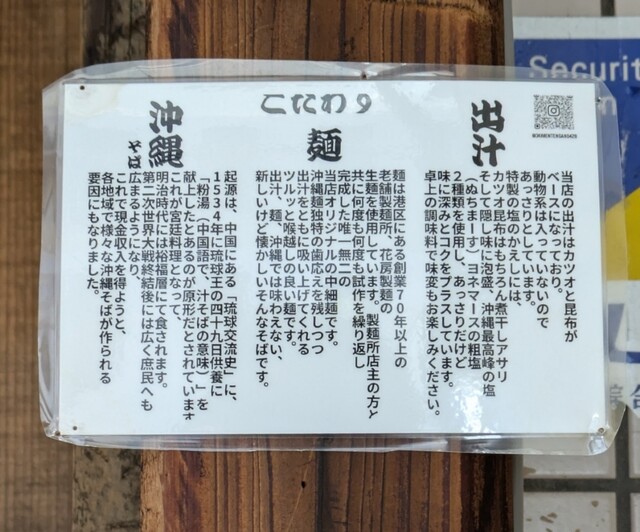 こだわり
出汁
当店の出汁はカツオと昆布が
ベースになっており。
動物系は入っていないので
あっさりとしています。
特製の塩のかえしには、
カツオ昆布はもちろん煮干しアサリ
そして隠し味に泡盛、沖縄最高峰の塩
(ぬちまーす)ヨネマースの粗塩
2種類を使用し、あっさりだけど
味に深みとコクをプラスしています。
卓上の調味料で味変もお楽しみください。
麺
麺は港区にある創業70年以上の
老舗製麺所、花房製麺の
生麺を使用しています。製麺所店主の方と
共に何度も何度も試作を繰り返し
完成した唯一無二の
当店オリジナルの中細麺です。
沖縄麺独特の歯応えを残しつつ
出汁をともに吸い上げてくれる
ツルッと喉越しの良い麺です。
出汁、麺、沖縄では味わえない、
新しいけど懐かしいそんなそばです。
沖縄そば
起源は、中国にある「琉球交流史」に、
1534年に琉球王の四十九日供養に
「粉湯(中国語で、汁そばの意味)」を
献上したとあるのが原形だとされています
これが宮廷料理となって、
明治時代には裕福層にて食されます。
第二次世界大戦終結後には広く庶民へも
広まるようになり、
これで現金収入を得ようと、
各地域で様々な沖縄そばが作られる
要因にもなりました。
Securit